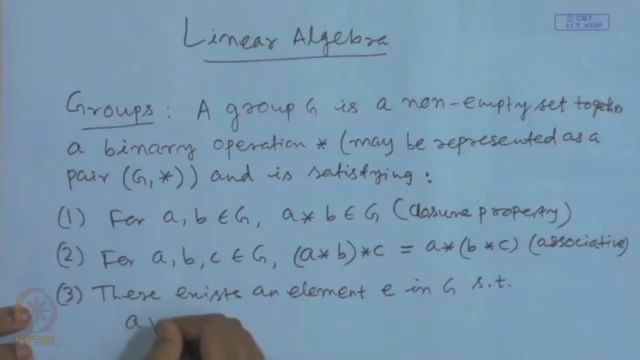 © CET
I.I.T. KGP
Linear Algebra
Groups : A group G is a non-empty set together
a binary operation * (may be represented as a
pair (G, *)) and is satisfying :
(1) For a, b ∈ G, a * b ∈ G (closure property)
(2) For a, b, c ∈ G, (a * b) * c = a * (b * c) (associative)
(3) There exists an element e in G s.t.
a
NPTEL